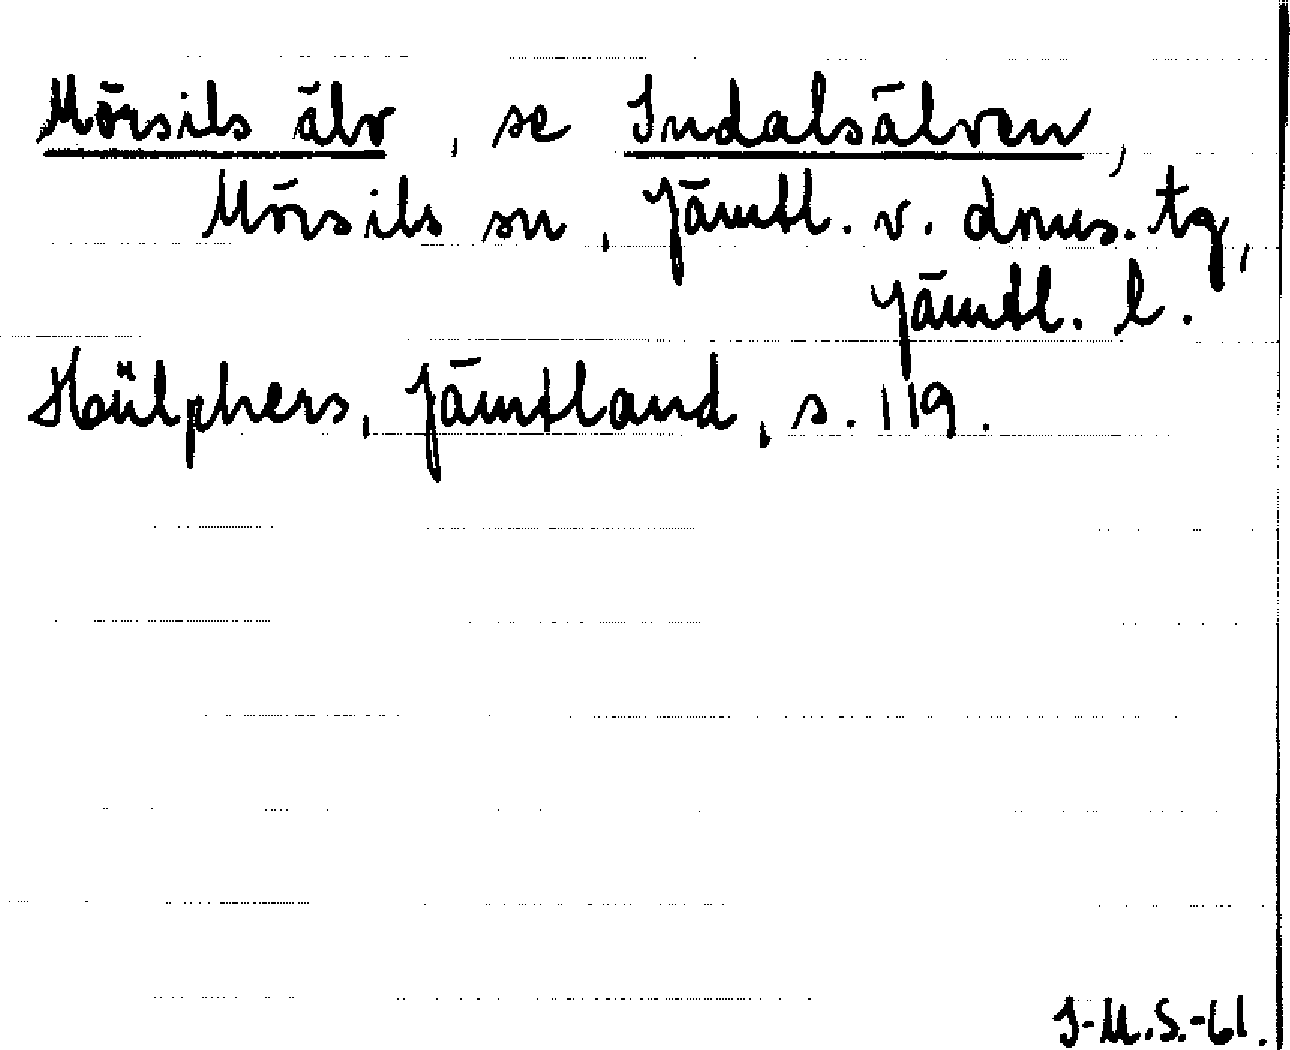 Mörsils älv, se Indalsälven,
Mörsils sn, Jämtl. v. doms. tg,
Jämtl. l.
Hülphers, Jämtland, s. 119.
I-M.S.-61.